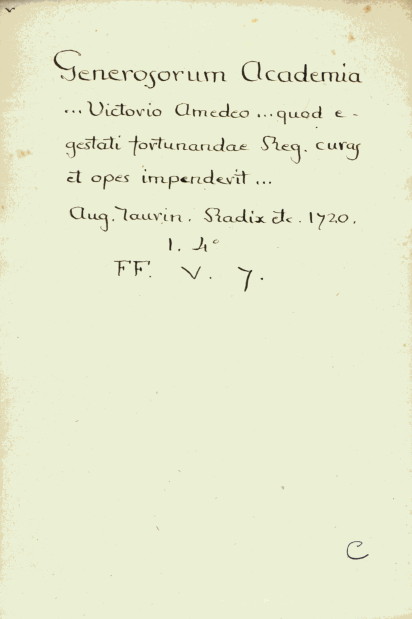 Generosorum Academia
... Victorio Amedeo ... quod e-
gestati fortunandae Reg. curas
et opes impenderit ...
Aug. Taurin. Radix etc. 1720.
1. 4°
FF. V. 7.
C